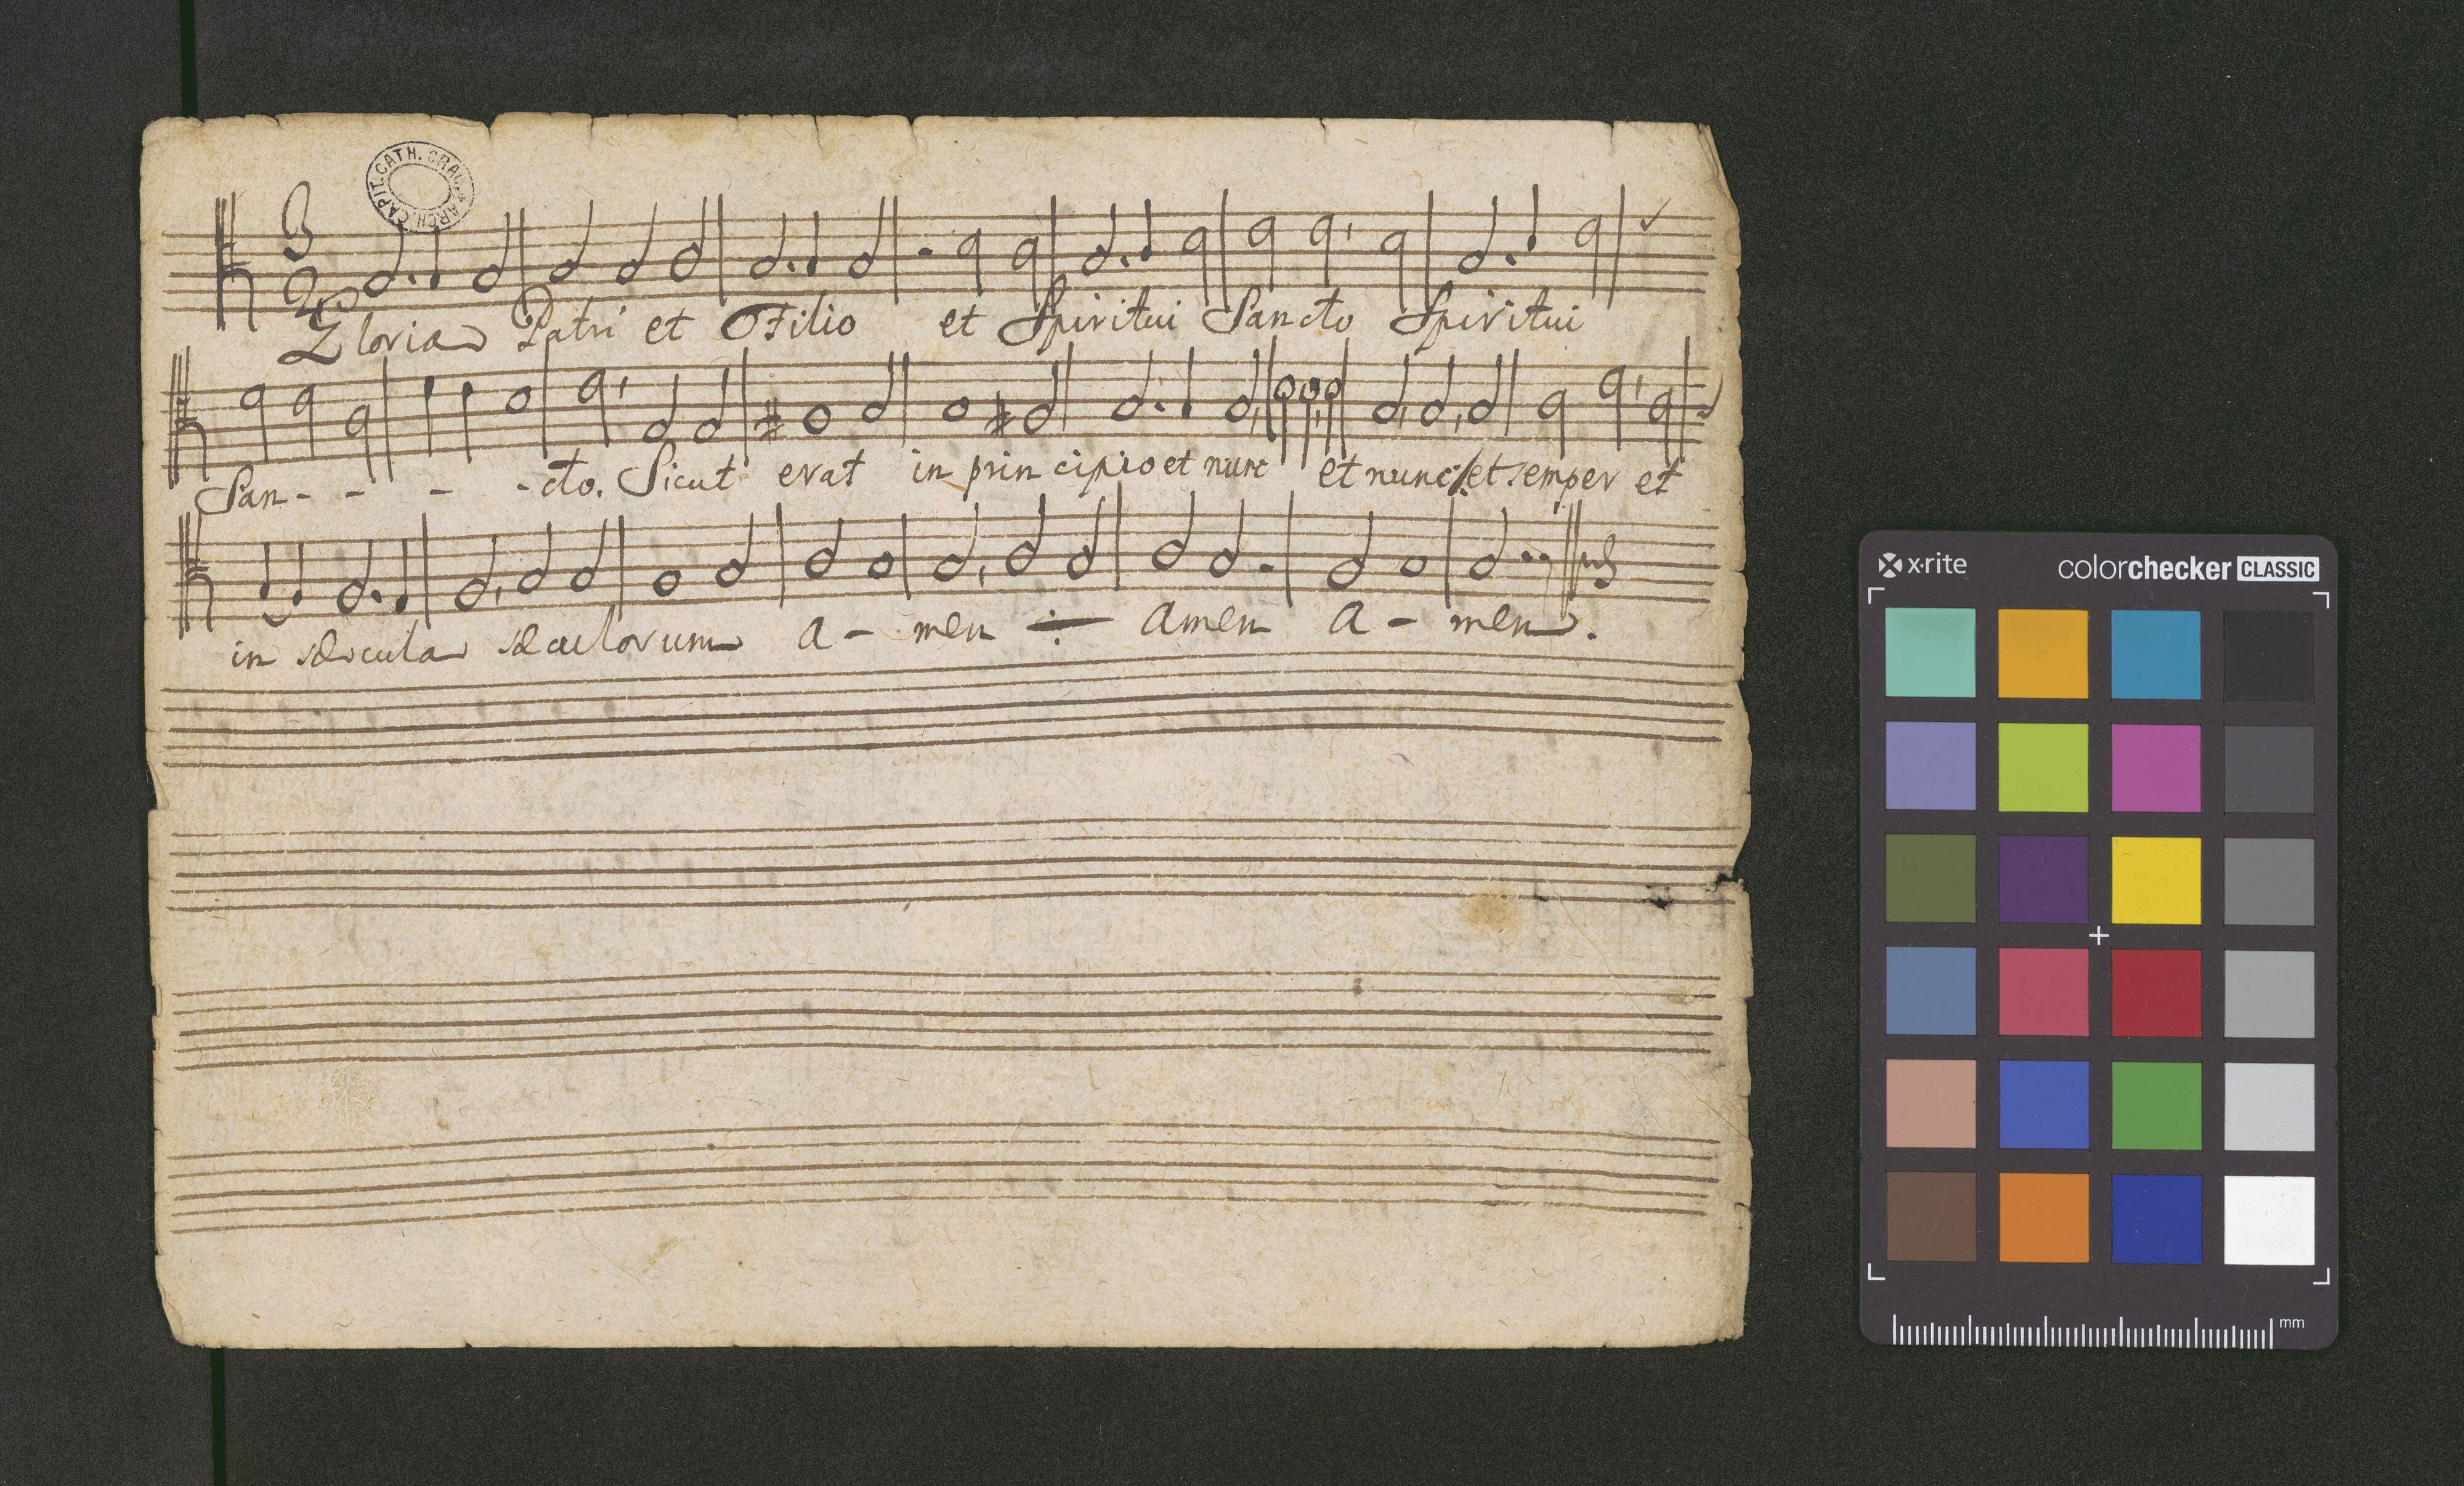 ARCH. CAPIT. CATH. CRAC.
3
2
Gloria Patri et Filio et Spiritui Sancto Spiritui
San - - - - cto. Sicut erat in prin cipio et nunc et nunc et semper et
in sæcula sæculorum a - men ÷ amen a - men.
x·rite colorchecker CLASSIC
mm